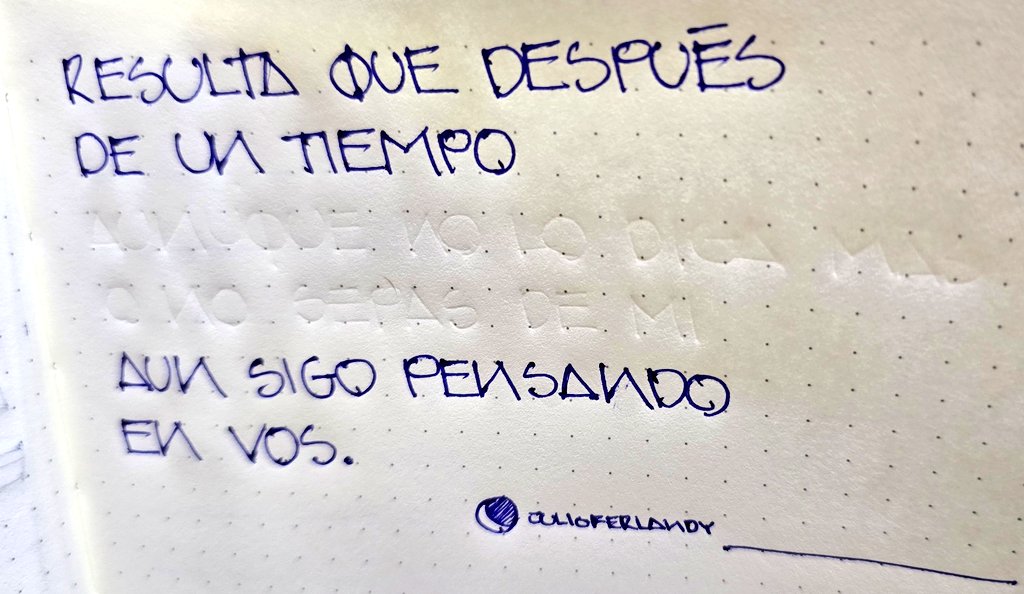 RESULTA QUE DESPUÉS
DE UN TIEMPO
AUNQUE NO LO DIGA MAS
O NO SEPAS DE MI
AUN SIGO PENSANDO
EN VOS.
JULIOFERLANDY